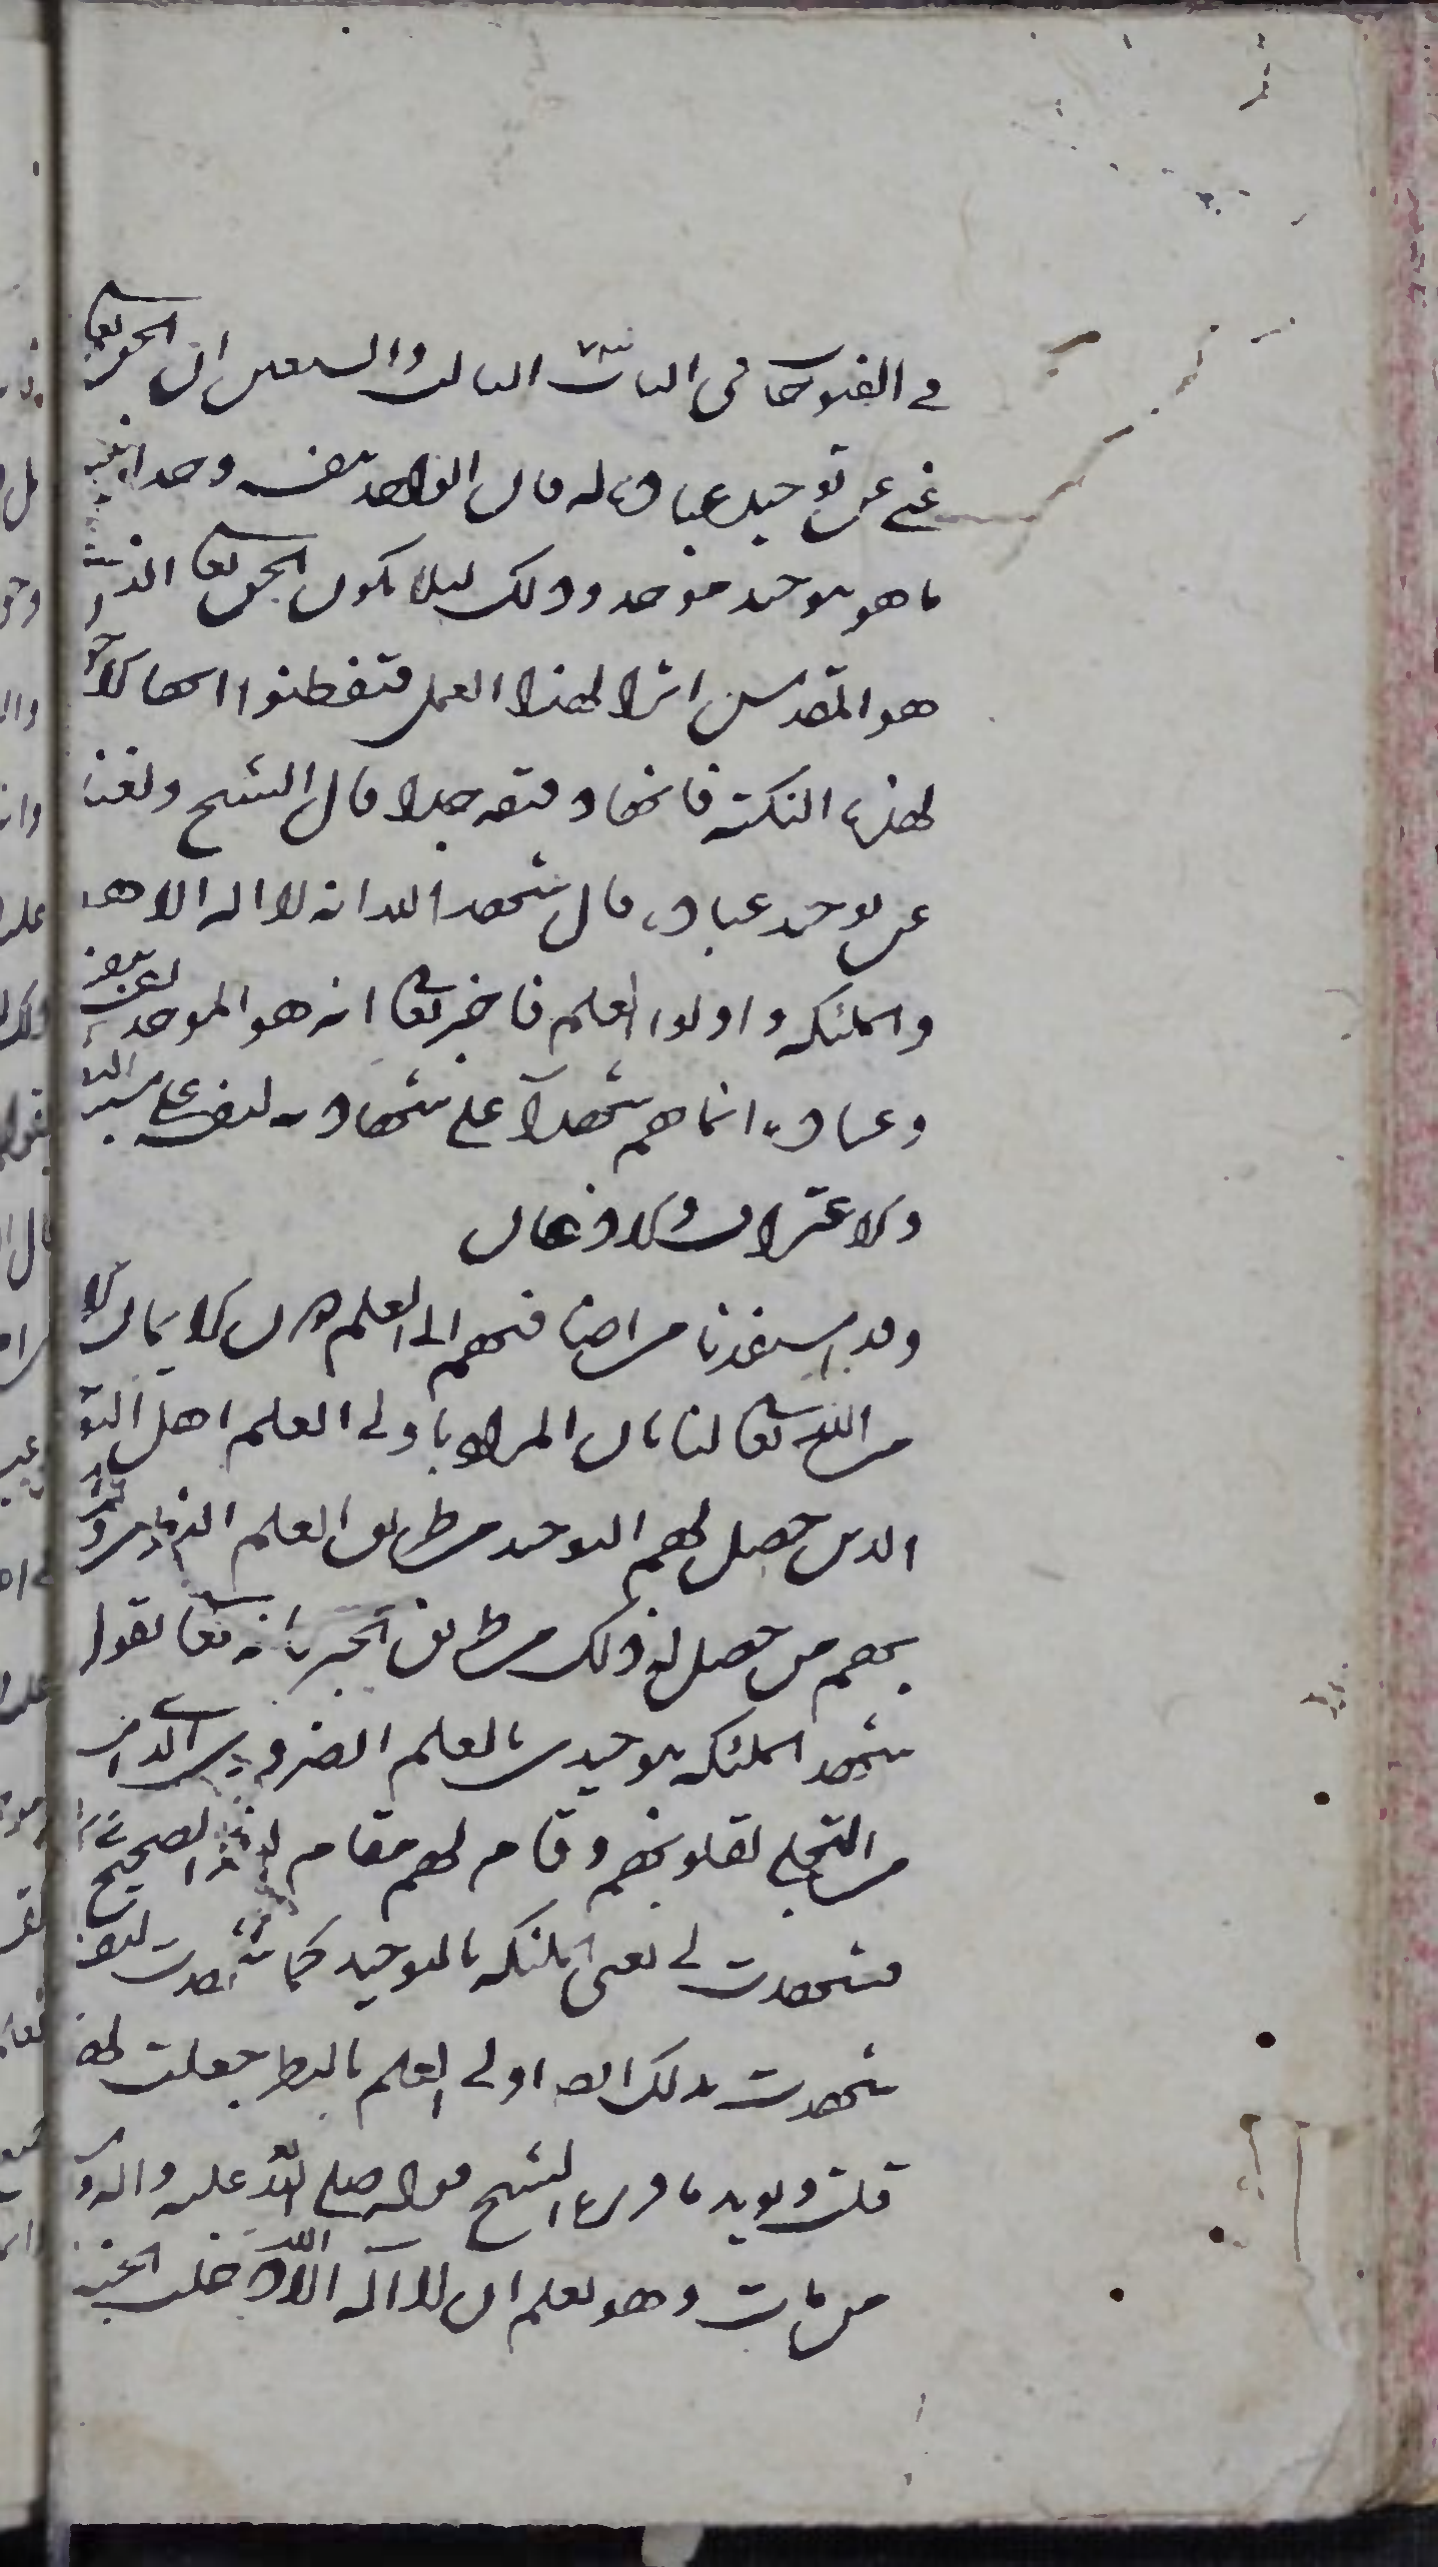 في الفتوحات في الباب الثالث والسبعين ان الحق تعالى
غني عن توحيد عباده له فان الواحد بنفسه وحدانيته
ما هو بتوحيد موحد وذلك ليلا يكون الحق تعالى الذي
هو المقدس اثرا لهذا العمل فتفطنوا ايها الاخوان
لهذه النكتة فانها دقيقة جدا قال الشيخ ولغناه
عن توحيد عباده قال شهد الله انه لا اله الا هو
والملئكة واولوا العلم فاخبر تعالى انه هو الموحد نفسه لنفسه
وعباده انما هم شهدآ على شهادته لنفسه على سبيل
والاعتراف والاذعان
وقد استفدنا من اضافتهم الى العلم دون الايمان
من الله تعالى لنا بان المراد باولي العلم اهل التوحيد
الذين حصل لهم التوحيد من طريق العلم
بهم من حصل له ذلك من طريق الخبر كانه تعالى يقول
شهد الملئكة بتوحيدي بالعلم الضروري
من التجلي لقلوبهم وقام لهم مقام النظر الصحيح
فشهدت لي يعني الملئكة بالتوحيد كما شهدت لنفسي
شهدت بذلك ايضا اولي العلم بالنظر جعلت لهم
قلت ويويد ما قرره الشيخ قوله صلى الله عليه واله و
من مات وهو يعلم ان لا اله الا الله دخل الجنة